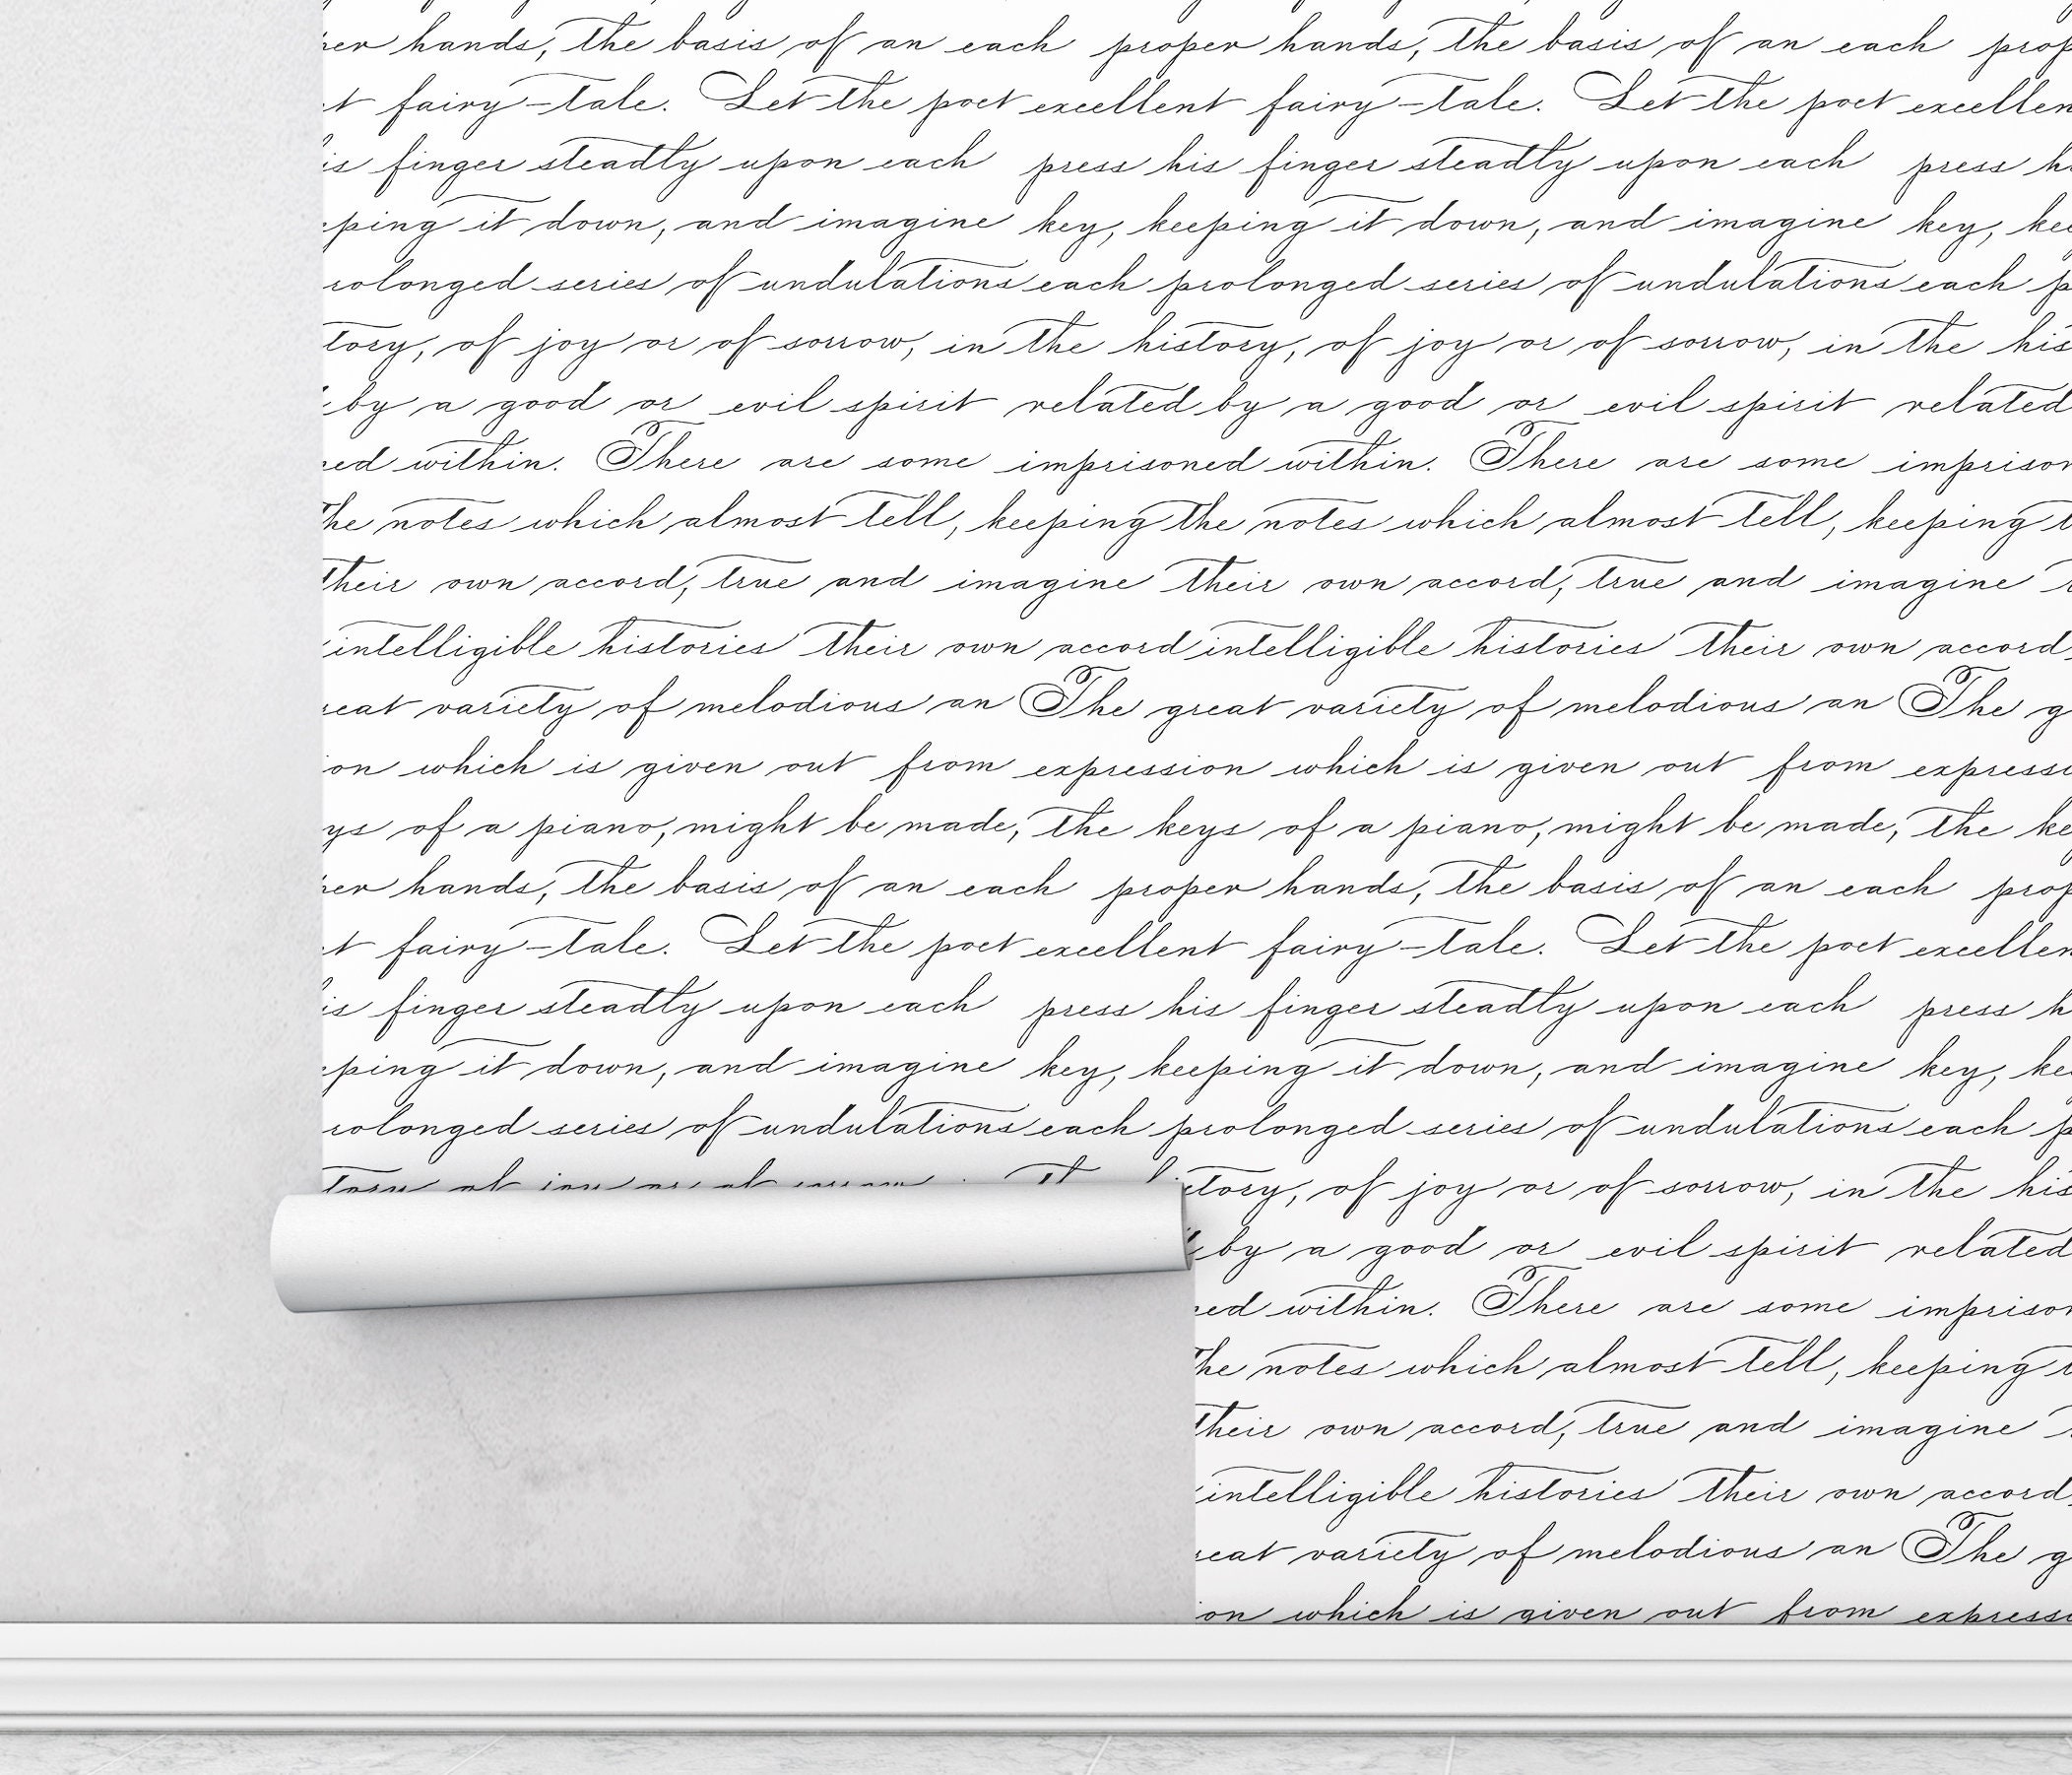 hands, the basis of an each proper hands, the basis of an each
fairy-tale. Let the poet excellent fairy-tale. Let the poet
finger steadtly upon each press his finger steadtly upon each press
it down, and imagine key, keeping it down, and imagine key,
series of undulations each prolonged series of undulations each
of joy or of sorrow, in the history, of joy or of sorrow, in the
by a good or evil spirit related by a good or evil spirit related
within. There are some imprisoned within. There are some
notes which almost tell, keeping the notes which almost tell, keeping
their own accord, true and imagine their own accord, true and imagine
intelligible histories their own accord intelligible histories their own accord
variety of melodious an The great variety of melodious an The
which is given out from expression which is given out from
of a piano, might be made, the keys of a piano, might be made, the
hands, the basis of an each proper hands, the basis of an each
fairy-tale. Let the poet excellent fairy-tale. Let the poet
finger steadtly upon each press his finger steadtly upon each press
it down, and imagine key, keeping it down, and imagine key,
series of undulations each prolonged series of undulations each
of joy or of sorrow, in the
by a good or evil spirit related
within. There are some
notes which almost tell, keeping
their own accord, true and imagine
intelligible histories their own accord
variety of melodious an The
which is given out from